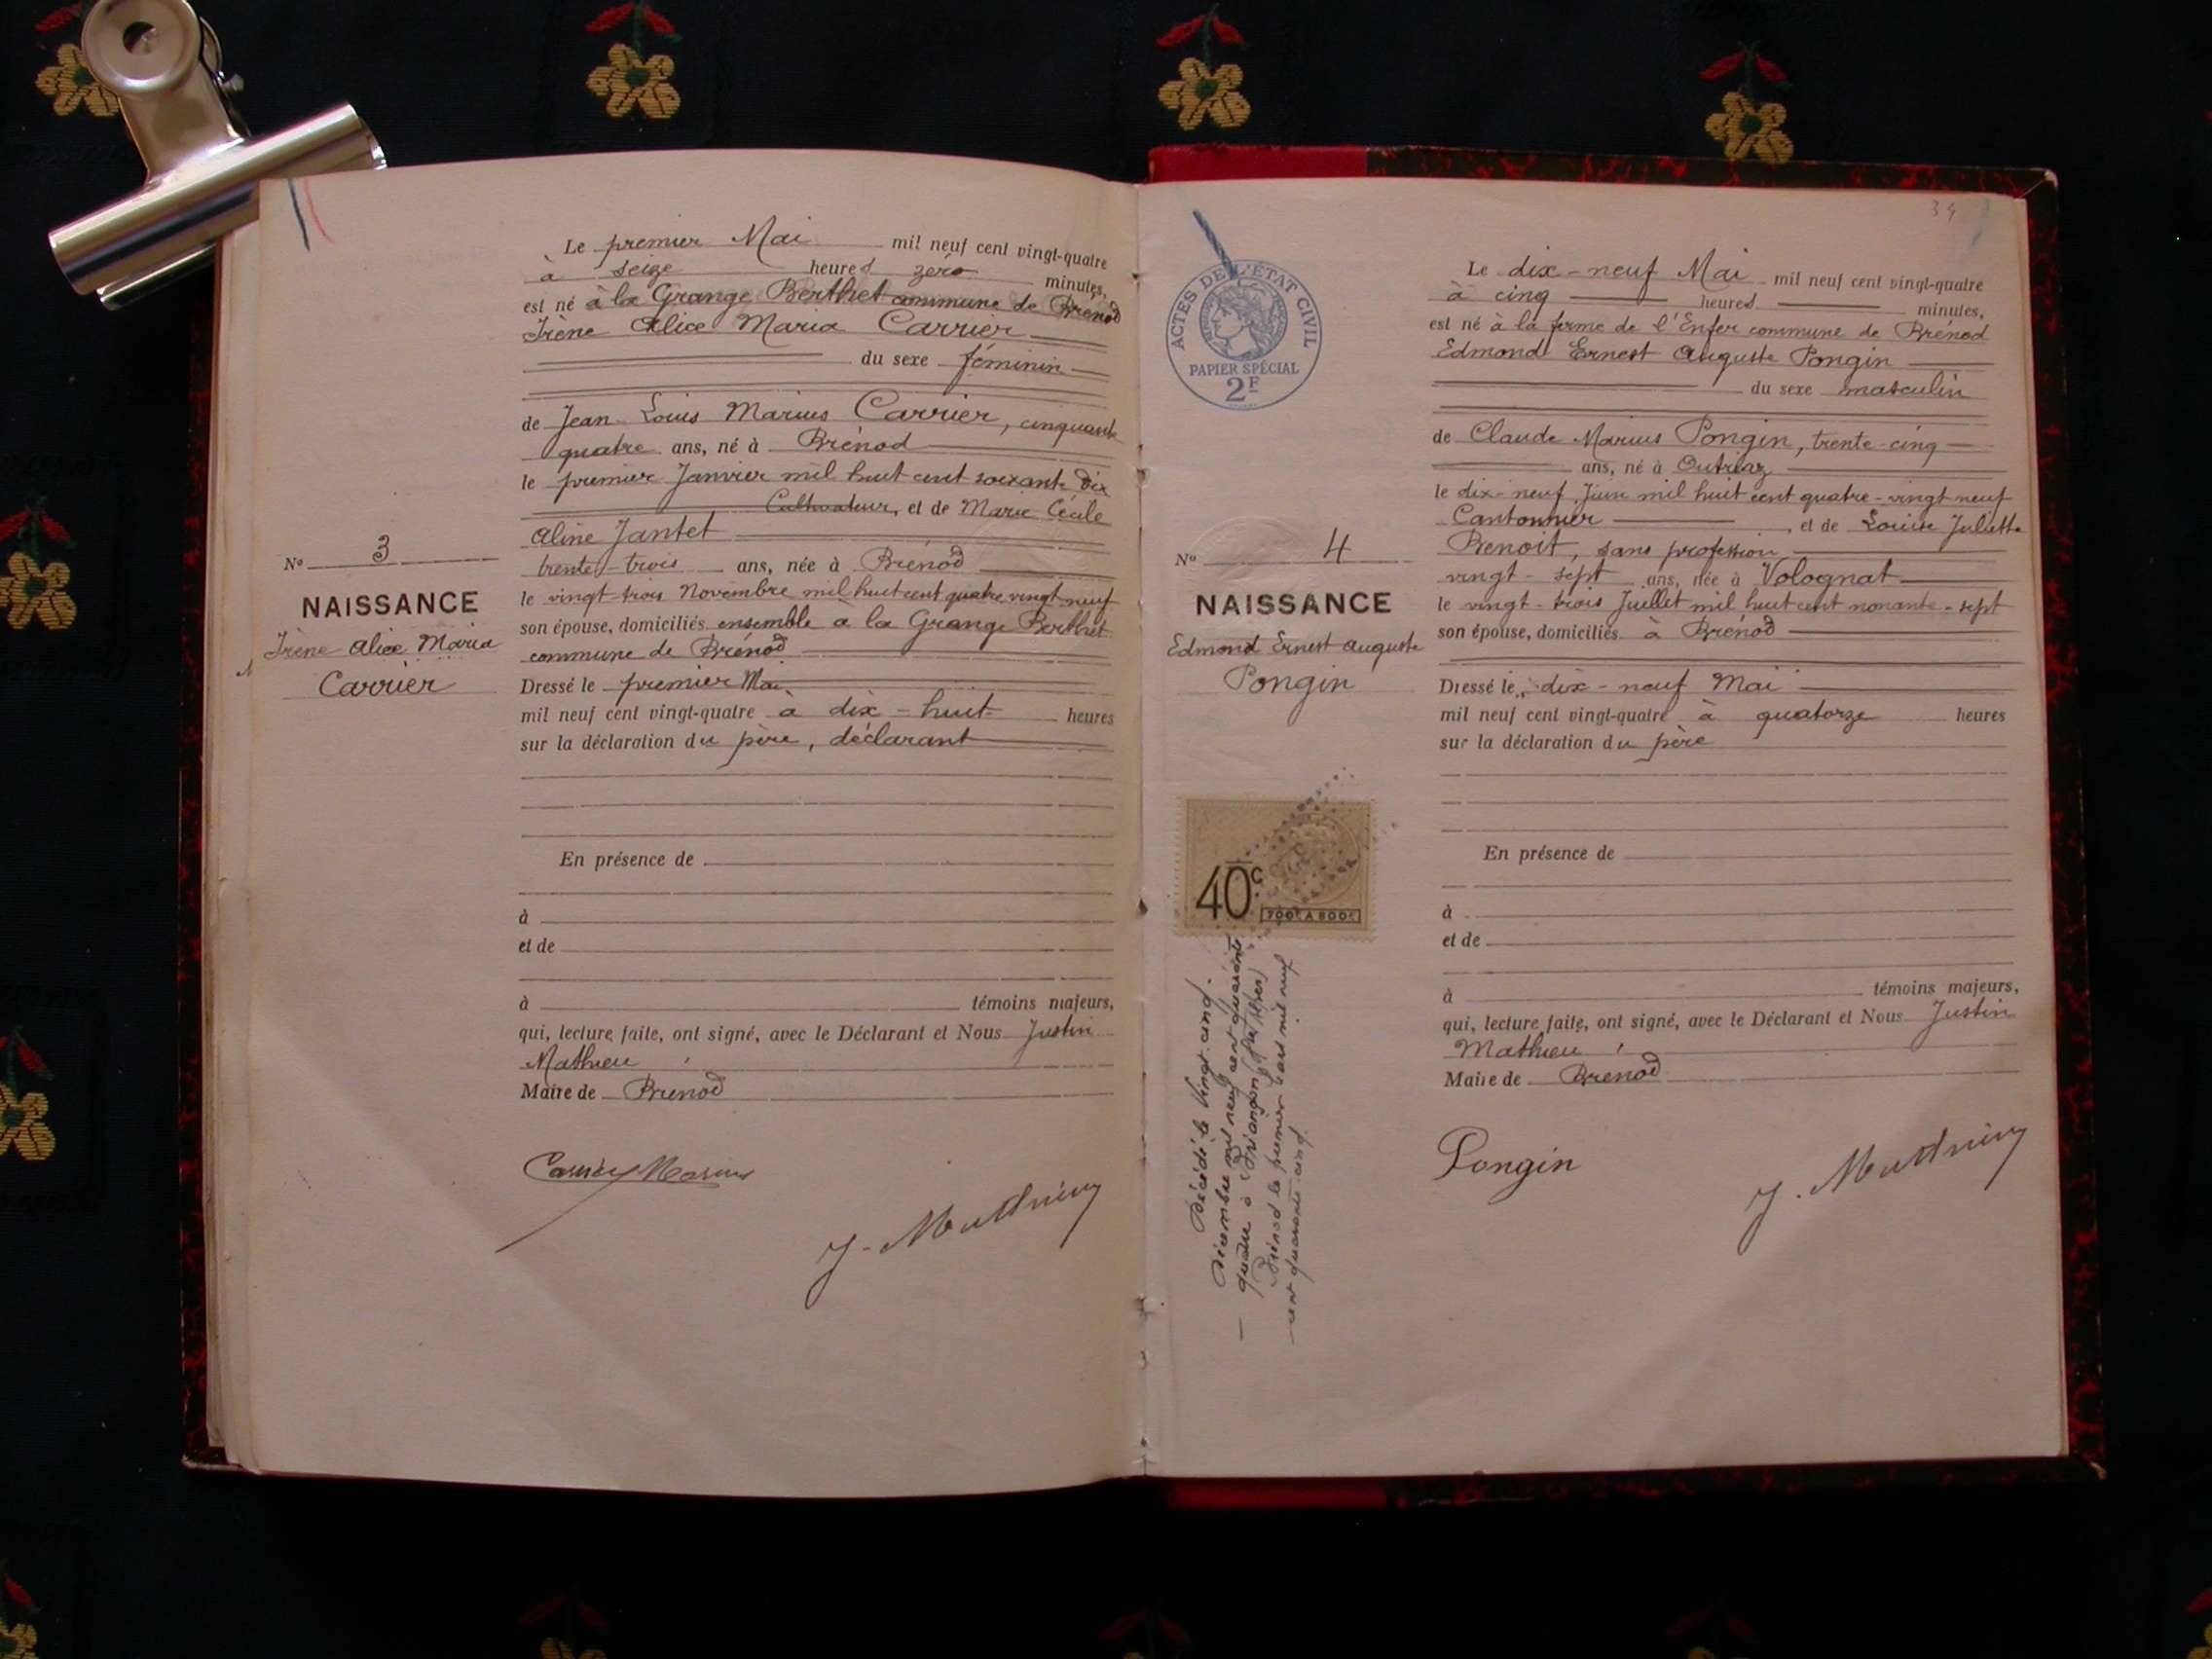 Le premier Mai mil neuf cent vingt-quatre
à seize heures zéro minutes,
est né à la Grange Berthet commune de Brénod
Irène Alice Maria Carrier
du sexe féminin
de Jean Louis Marius Carrier, cinquante
quatre ans, né à Brénod
le premier Janvier mil huit cent soixante dix
Cultivateur, et de Marie Cécile
Aline Jantet
trente-trois ans, née à Brénod
le vingt-trois Novembre mil huit cent quatre vingt neuf
son épouse, domiciliés ensemble à la Grange Berthet
commune de Brénod
Dressé le premier Mai
mil neuf cent vingt-quatre à dix-huit heures
sur la déclaration du père, déclarant
En présence de
à
et de
à témoins majeurs,
qui, lecture faite, ont signé, avec le Déclarant et Nous Justin
Mathieu
Maire de Brenod
Carrier Marius
J. Mathieu
No 3
NAISSANCE
Irène Alice Maria
Carrier
34
ACTES DE L'ÉTAT CIVIL
PAPIER SPÉCIAL
2F
No 4
NAISSANCE
Edmond Ernest Auguste
Pongin
40c
700F A 800F
Décédé le vingt-cinq
Décembre mil neuf cent quarante
quatre à Briançon
Brénod le premier mars mil neuf
cent quarante cinq.
Le dix-neuf Mai mil neuf cent vingt-quatre
à cinq heures minutes,
est né à la ferme de l'Enfer commune de Brénod
Edmond Ernest Auguste Pongin
du sexe masculin
de Claude Marius Pongin, trente-cinq
ans, né à Outriaz
le dix-neuf Juin mil huit cent quatre-vingt neuf
Cantonnier, et de Louise Juliette
Benoit, sans profession
vingt-sept ans, née à Volognat
le vingt-trois Juillet mil huit cent nonante-sept
son épouse, domiciliés à Brénod
Dressé le dix-neuf Mai
mil neuf cent vingt-quatre à quatorze heures
sur la déclaration du père
En présence de
à
et de
à témoins majeurs,
qui, lecture faite, ont signé, avec le Déclarant et Nous Justin
Mathieu
Maire de Brenod
Pongin
J. Mathieu